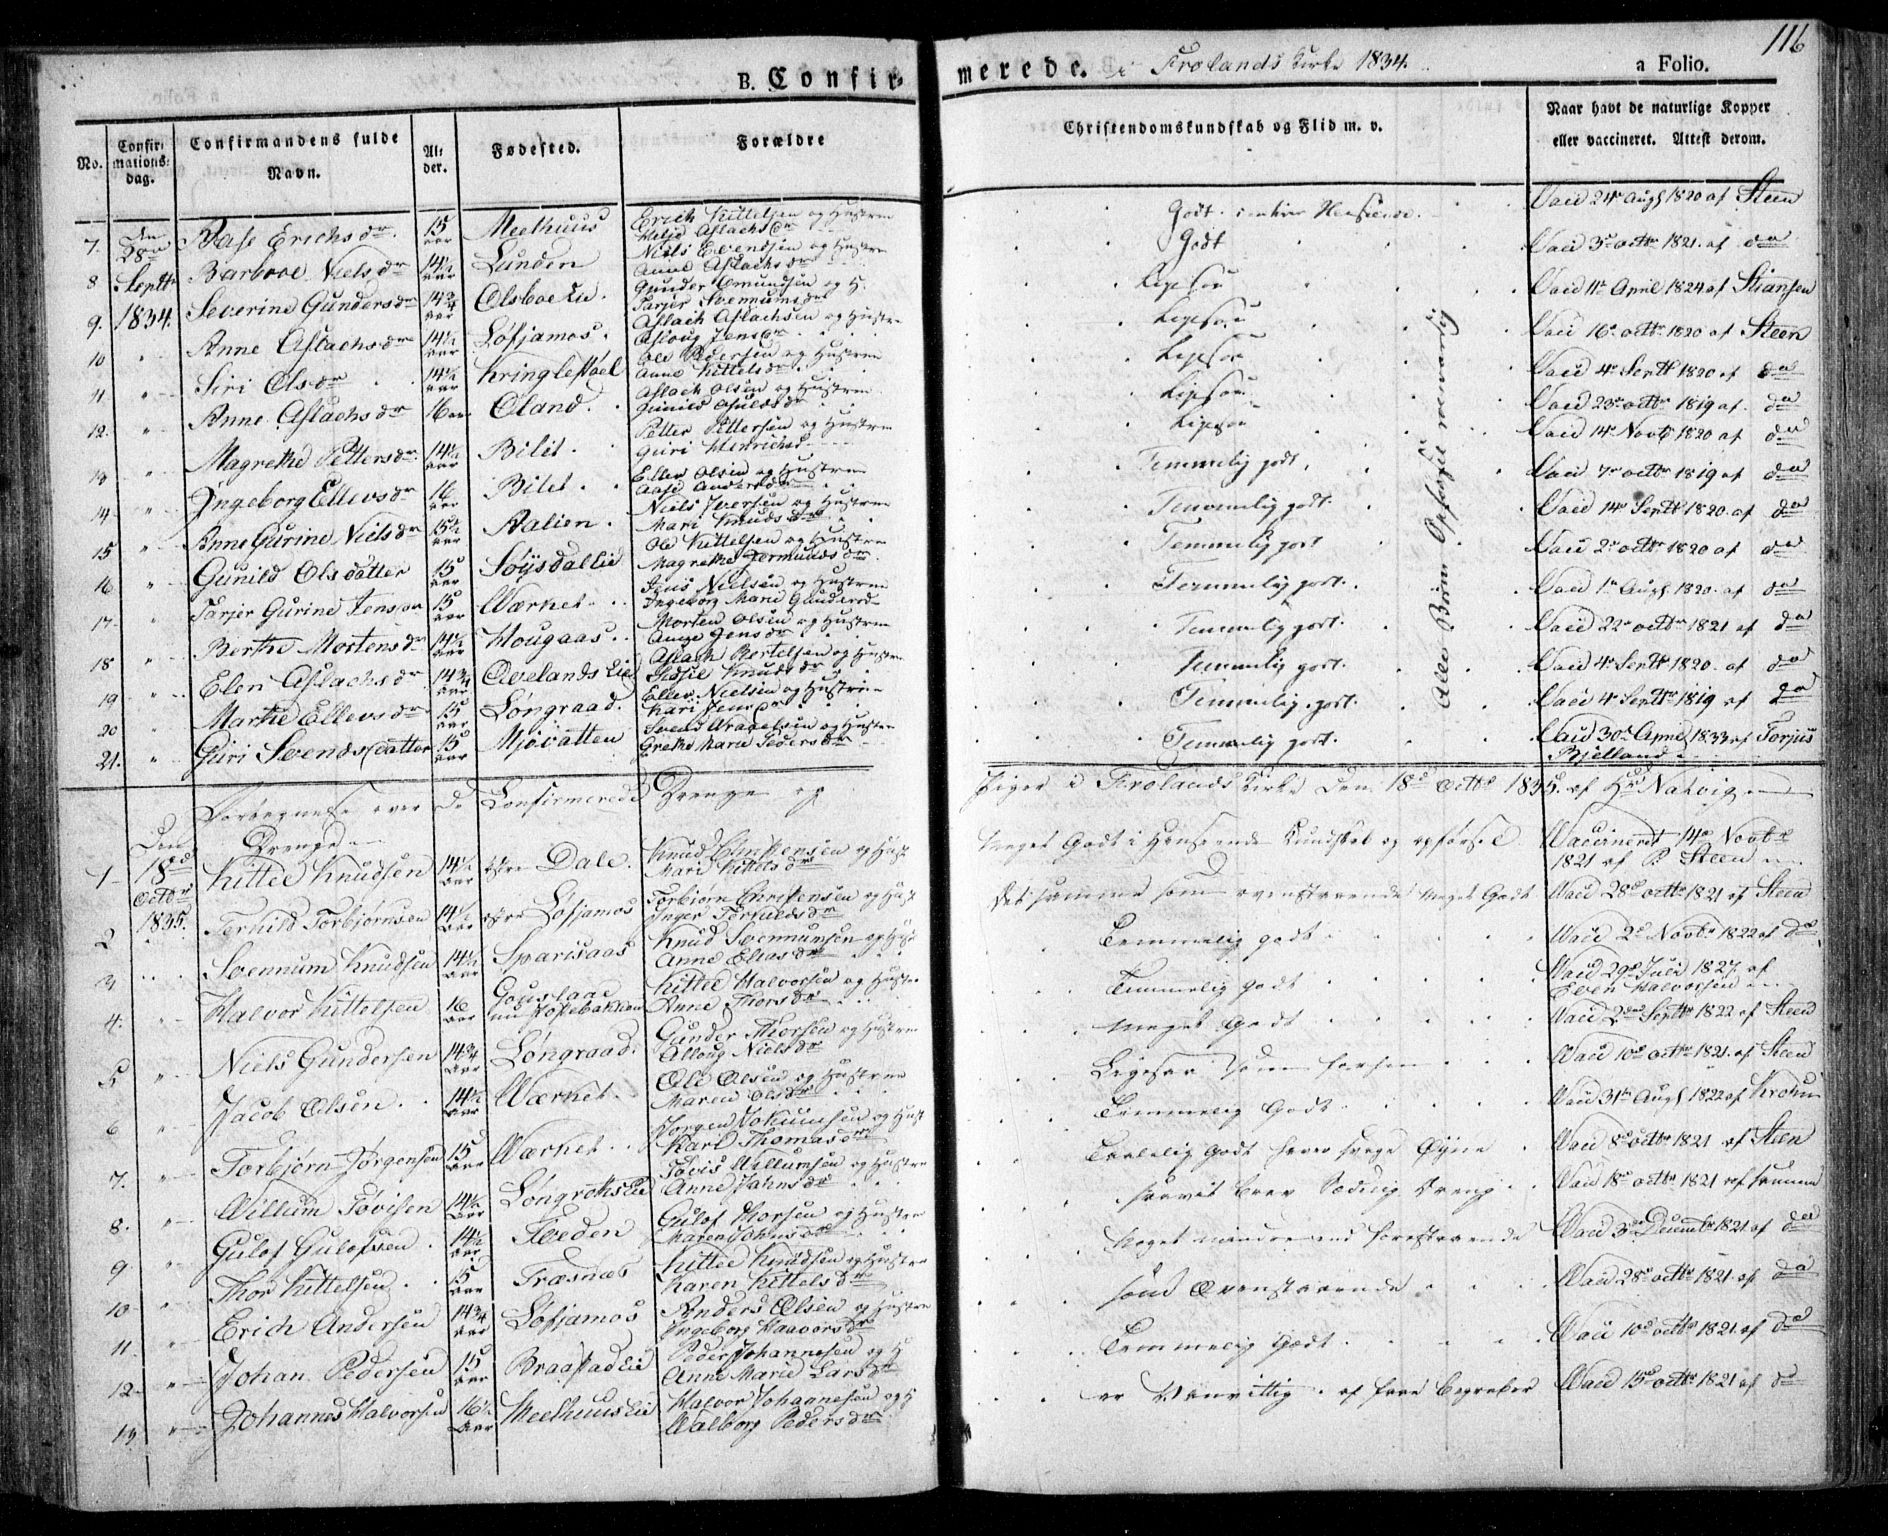 116
B. Confir- merede. i Frolands Kirke 1834. a Folio.
No.
Confirmationsdag.
Confirmandens fulde Navn.
Alder.
Fødested.
Forældre
Christendomskundskab og Flid m. v.
Naar havt de naturlige Kopper eller vaccineret. Attest derom.
7. den 28de Aase Erichsdr. 15 aar Meelhuus Erich Kittelsen og Hustrue Godt Vacc 24 Augs 1820 af Steen
8 Septbr Barbroe Nielsdr 14½ aar Lunden Niels Evendsen og Hustrue Anne Aslachsdr Godt Vacc 3de octbr 1821. af do
9. 1834. Severine Gundersdr 14¾ aar Gunder Omundsen og H. Ligesaa Vacc 11te April 1824 af Stiansen
10 " Anne Aslachsdr 14½ aar Løfjamos. Aslach Aslachsen og Hustrue Asloug Jensdr Ligesaa Vacc 16 octbr 1820 af Steen
11 " Siri Olsdr 14½ aar Kringlestøel Ole Pedersen og Hustrue Anne Kittelsdr Ligesaa Vacc 4 Septbr 1820 af do
12. " Anne Aslachsdr 16 aar Øland. Aslach Olsen og Hustrue Gunild Ligesaa Vacc 23 octbr 1819 af do
13 " Magrethe Pettersdr 14½ aar Bilet. Petter Pettersen og Hustrue Guri Henrichsd Ligesaa Vacc 14 Novb 1820 af do
14 " Ingeborg Ellevsdr 16 aar Bilet. Ellev Olsen og Hustrue Aase Andersdr Temmelig godt, Vacc 7 octbr 1819 af do
15 " Anne Gurine Nielsdr 15½ aar Aalien. Niels Iversen og Hustrue Mari Knudsdr Temmelig godt. Vacc 14 Septbr 1820. af do
16 " Gunild Olsdatter 15 aar Søysdallie Ole Kittelsen og Hustrue Magrethe Temmelig godt Vacc 2 octbr 1820 af do
17 " Tarjer Gurine Jensdr 15 aar Wærket. Jens Nielsen og Hustrue Ingeborg Marie Temmelig godt. Vacc 1te Augs. 1820. af do
18 " Berthe Mortensdr 14½ aar Hougaas. Morten Olsen og Hustrue Ange Jensdr Temmelig godt. Vacc 22 octbr 1821 af do
19 " Elen Aslachsdr 14¾ aar Ovelands Lie Aslach Bertelsen og Hustrue Sidsel Knudsdr Temmelig godt. Vacc 4 Septbr 1820. af do
20 " Marthe Ellevsdr 15 aar Løngraad. Ellev Nielsen og Hustrue Kari Jensdr Temmelig godt. Vacc 4 Septbr 1819 af do
21. " Guri Svendsdatter 15 aar Mjøvatten Svend og Hustrue Grethe Marie Pedersdr Temmelig godt. Vacc 30 April 1833 af Torjus Bjelland
Alle Børns Opførsel
Fortegnelse over de Confirmerede Drenge og Piger i Frolands Kirke den 18de Octbr 1835. af Hr Natvig
Drenge
1 Den 18de Octbr 1835. Kittel Knudsen 14½ aar Dale. Knud Christensen og Hust Mari Kittelsdr Meget Godt i Henseende Kundskab og opførsel Vaccineret 14 Novbr 1821 af P Steen
2 Terkild Torbjørnsen 14½ aar Løfjamos Torbjørn Christensen og Hust Inger Terkildsdr det samme som ovenstaaende Meget Godt Vacc 28 octbr 1821 af Steen
3 " Svennum Knudsen 14½ aar Sparisaas Knud Svennumsen og Hust Anne Eliasdr Temmelig godt Vacc 2 Novbr 1822 af do
4. " Halvor Kittelsen 16 aar Kittel Halvorsen og Hustrue Anne Thorsdr Temmelig godt Vacc 29 Juli 1827 af Even Halvorsen
5 " Niels Gundersen 14¾ aar Løngraad. Gunder Thorsen og Hustrue Alloug Nielsdr Meget Godt Vacc 2den Septbr 1822 af Steen
6 " Jacob Olsen. 14½ aar Wærket. Ole Olsen og Hustrue Maren Olsdr Ligesaa som Vacc 10 octbr 1821. af Steen
7. " Torbjørn Jørgensen 15 aar Wærket. Jørgen Jokumsen og Hust Kari Thomasdr Temmelig Godt. Vacc 31te Augs 1822 af Krohn
8. " Willum Tøvisen 14½ aar Løngreks Lie Tøvis Willumsen og Hustrue Anne Jahnsdr Godt svage Øyne Vacc 8 octbr 1821 af Steen
9 " Gulof Gulofsen. 14½ aar Tveden Gulof Thorsen og Hustrue Maren Johnsdr Brav Sædelig Dreng Vacc 18 octbr 1821 af samme
10 " Thor Kittelsen. 15 aar Træsnæs Kittel Knudsen og Hustrue Karen Kittelsdr Noget mindre end forestaaende Vacc 3de Decembr 1821. af do
11. " Erich Andersen 14¾ aar Løfjamos Anders Olsen og Hustrue Ingeborg Haavorsdr som Ovenstaaende Vacc 28 octbr 1821. af do
12. " Johan Pedersen 15 aar Braastad Lie Peder Johannesen og H Anne Marie Larsdr Temmelig Godt Vacc 10 octbr 1821. af do
13 " Johannes Halvorsen 16½ aar Meelhuus Lie Halvor Johannesen og H Walborg Pedersdr er Vanvittig. af faae Begreber Vacc 15 octbr 1821. af do